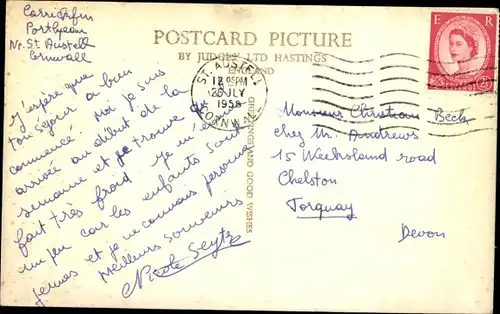 Carrickfin
Porthpean
Nr. St Austell
Cornwall
POSTCARD PICTURE
BY JUDGES LTD HASTINGS
ENGLAND
GREETINGS AND GOOD WISHES
ST. AUSTELL
12 05PM
26 JLY
1958
CORNWALL
E R
J'espère que
ton séjour a bien
commencé. Moi je suis
arrivée au début de la
semaine et je trouve qu'
fait très froid. Je m'en
un peu car les enfants sont
jeunes et je ne connais personne
Meilleurs souvenirs
Nicole Seytz
Monsieur Christian Beck
chez Mr. Andrews
15 Weeksland road
Chelston
Torquay
Devon